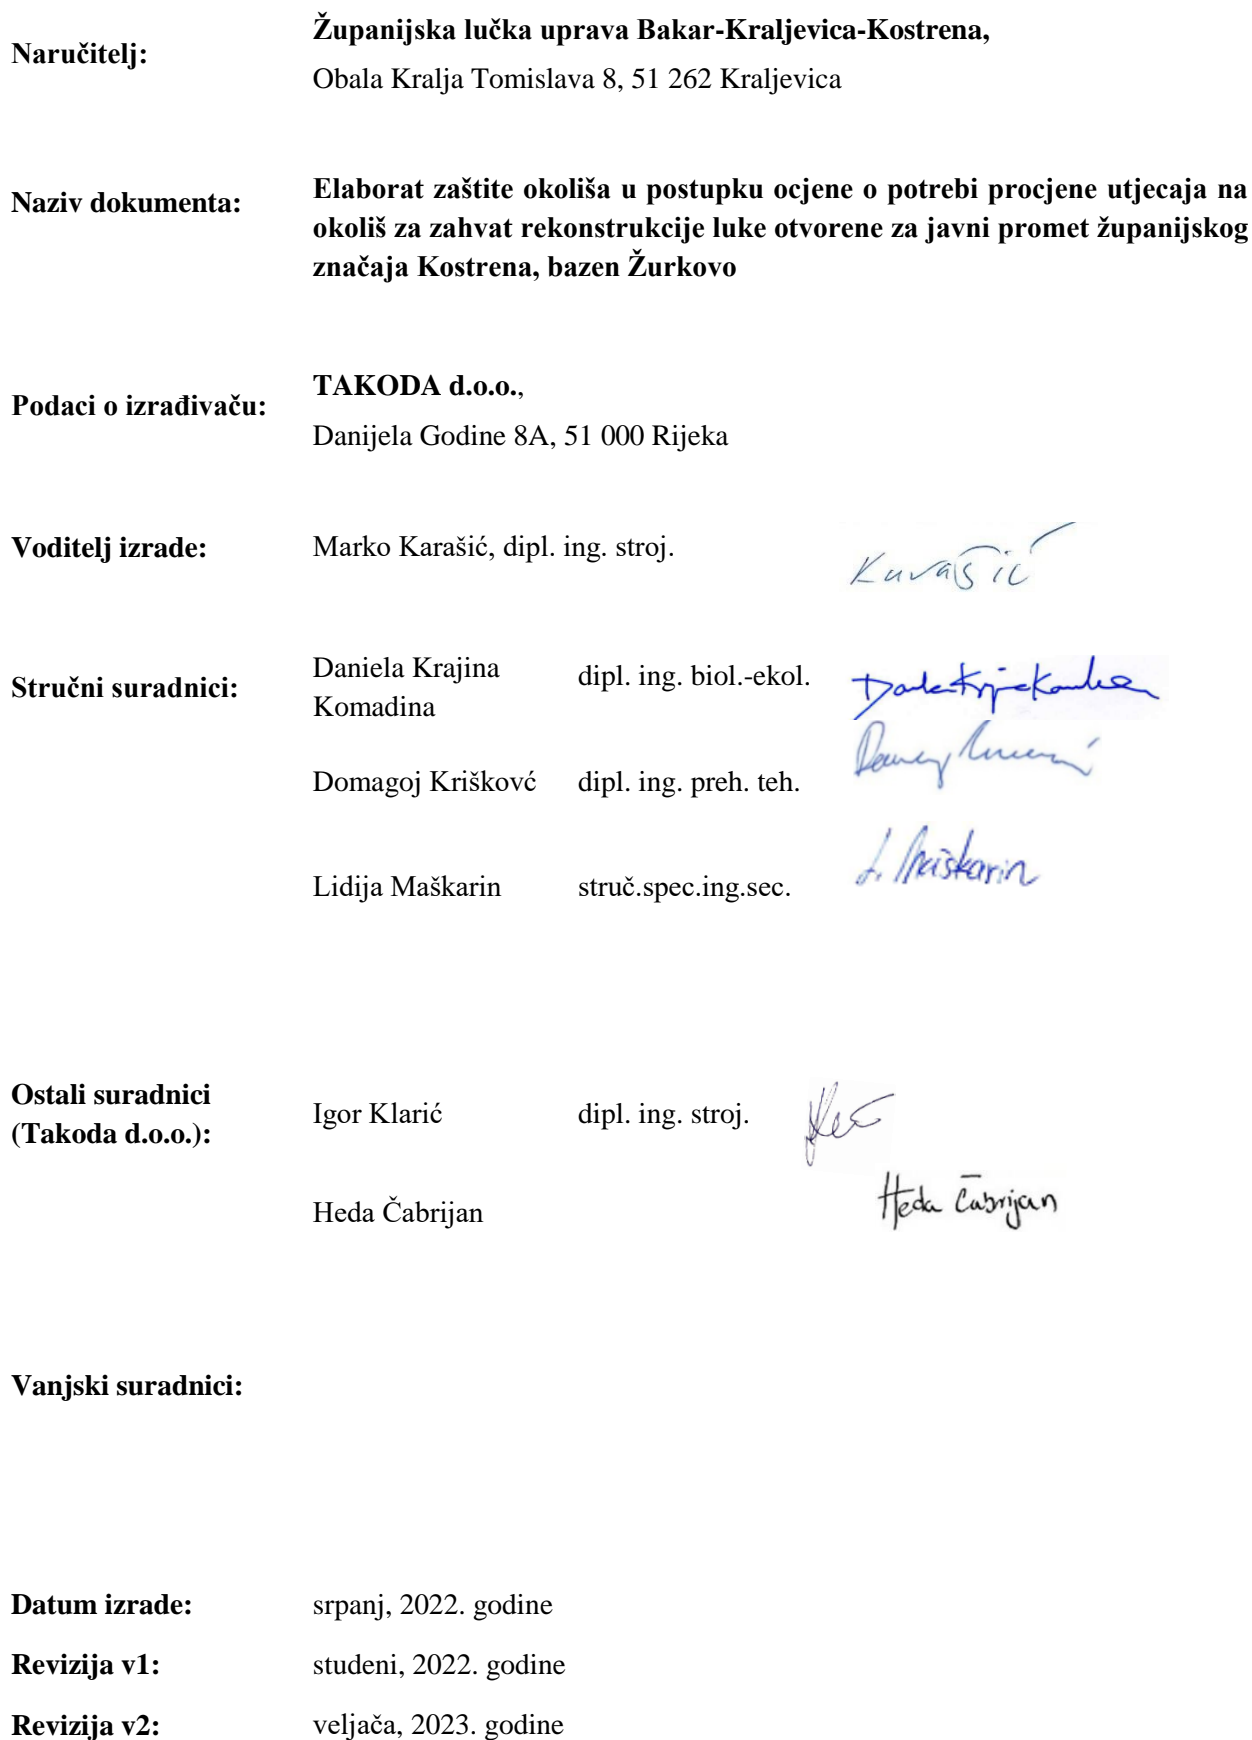 Naručitelj:
Županijska lučka uprava Bakar-Kraljevica-Kostrena,
Obala Kralja Tomislava 8, 51 262 Kraljevica
Naziv dokumenta:
Elaborat zaštite okoliša u postupku ocjene o potrebi procjene utjecaja na
okoliš za zahvat rekonstrukcije luke otvorene za javni promet županijskog
značaja Kostrena, bazen Žurkovo
Podaci o izrađivaču:
TAKODA d.o.o.,
Danijela Godine 8A, 51 000 Rijeka
Voditelj izrade:
Marko Karašić, dipl. ing. stroj.
Karašić
Stručni suradnici:
Daniela Krajina
Komadina
dipl. ing. biol.-ekol.
Domagoj Kriškovć
dipl. ing. preh. teh.
Lidija Maškarin
struč.spec.ing.sec.
L. Maškarin
Ostali suradnici
(Takoda d.o.o.):
Igor Klarić
dipl. ing. stroj.
Heda Čabrijan
Heda Čabrijan
Vanjski suradnici:
Datum izrade:
srpanj, 2022. godine
Revizija v1:
studeni, 2022. godine
Revizija v2:
veljača, 2023. godine